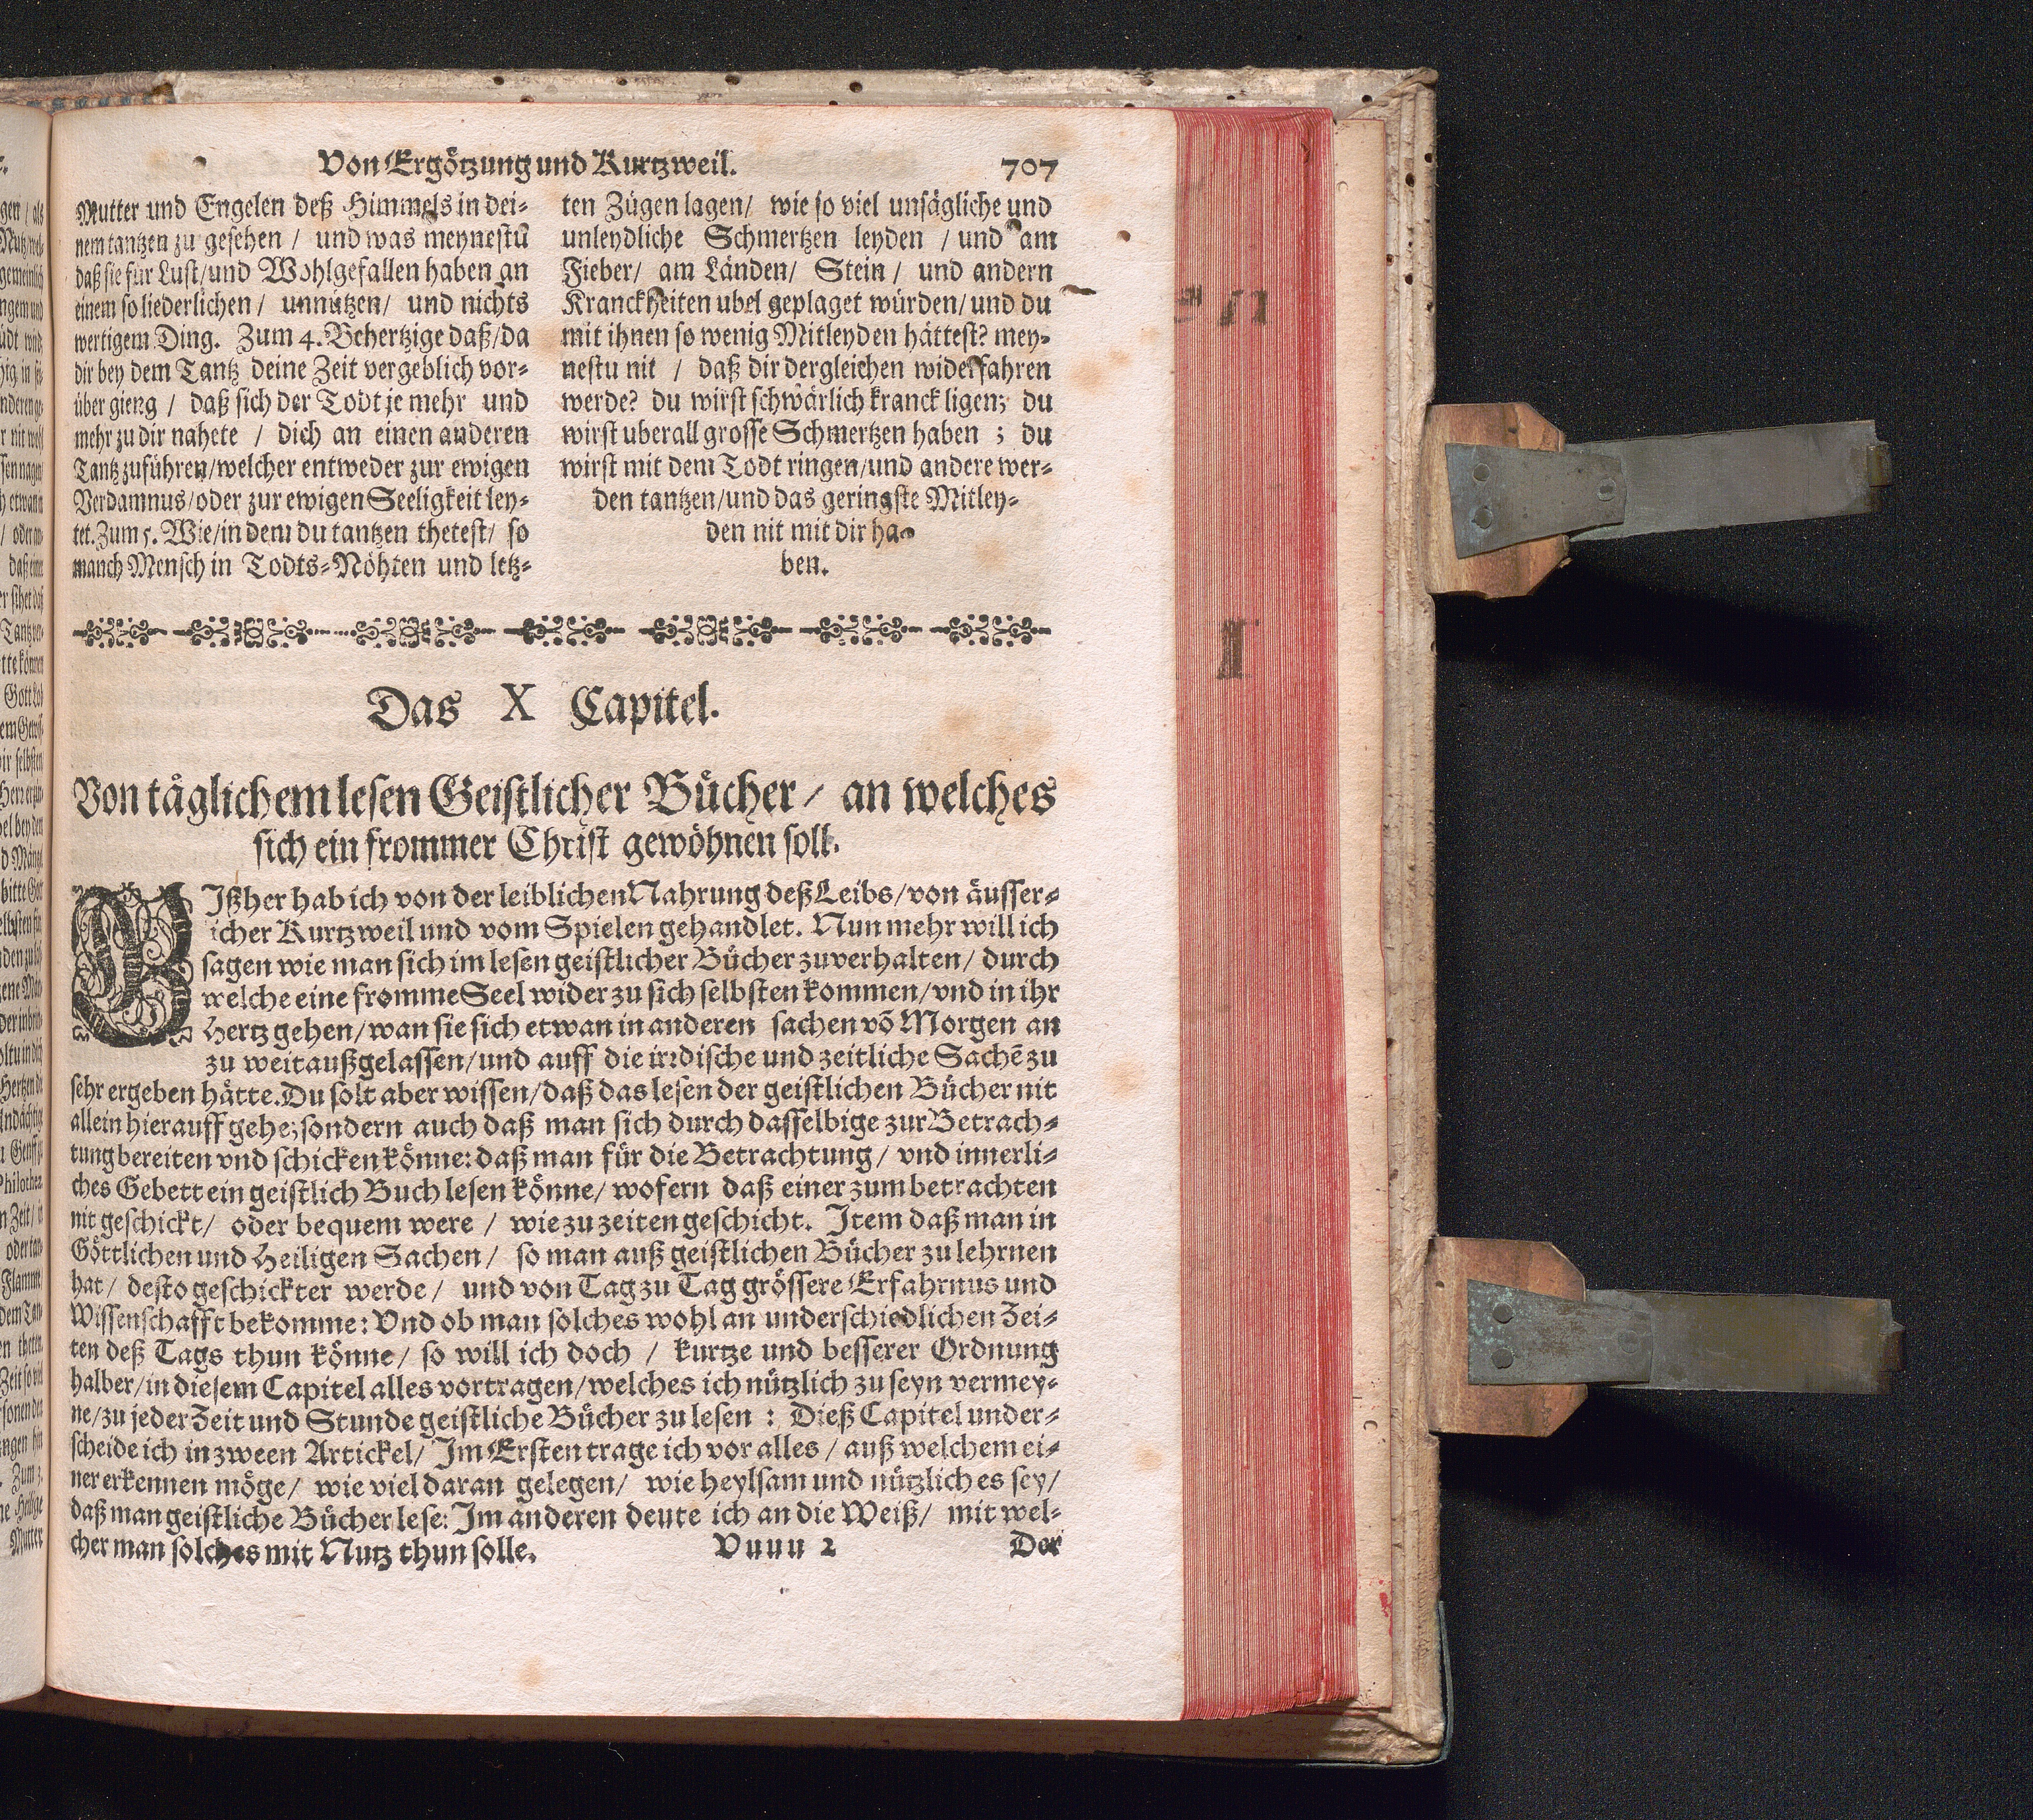 Von Ergötzung und Kurtzweil. 707
Mutter und Engelen deß Himmels in dei-
nem tantzen zu gesehen / und was meynestu
daß sie für Lust/und Wohlgefallen haben an
einem so liederlichen / unnützen/ und nichts
wertigem Ding. Zum 4. Behertzige daß/da
dir bey dem Tantz deine Zeit vergeblich vor-
über gieng / daß sich der Todt je mehr und
mehr zu dir nahete / dich an einen anderen
Tantz zuführen/welcher entweder zur ewigen
Verdamnus/oder zur ewigen Seeligkeit ley-
tet. Zum 5. Wie/in dem du tantzen thetest/ so
manch Mensch in Todts-Nöhten und letz-
ten Zügen lagen/ wie so viel unsägliche und
unleydliche Schmertzen leyden / und am
Fieber/ am Länden/ Stein / und andern
Kranckheiten ubel geplaget würden/ und du
mit ihnen so wenig Mitleyden hättest? mey-
nestu nit / daß dir dergleichen widerfahren
werde? du wirst schwärlich kranck ligen; du
wirst uberall grosse Schmertzen haben ; du
wirst mit dem Todt ringen/und andere wer-
den tantzen/und das geringste Mitley-
den nit mit dir ha-
ben.
Das X Capitel.
Von täglichem lesen Geistlicher Bücher / an welches
sich ein frommer Christ gewöhnen soll.
BIßher hab ich von der leiblichen Nahrung deß Leibs/von äusser-
icher Kurtzweil und vom Spielen gehandlet. Nun mehr will ich
sagen wie man sich im lesen geistlicher Bücher zuverhalten/ durch
welche eine fromme Seel wider zu sich selbsten kommen/vnd in ihr
Hertz gehen/wan sie sich etwan in anderen sachen võ Morgen an
zu weit außgelassen/und auff die irrdische und zeitliche Sachẽ zu
sehr ergeben hätte. Du solt aber wissen/daß das lesen der geistlichen Bücher nit
allein hierauff gehe; sondern auch daß man sich durch dasselbige zur Betrach-
tung bereiten vnd schicken könne: daß man für die Betrachtung/ vnd innerli-
ches Gebett ein geistlich Buch lesen könne/ wofern daß einer zum betrachten
nit geschickt/ oder bequem were / wie zu zeiten geschicht. Item daß man in
Göttlichen und Heiligen Sachen/ so man auß geistlichen Bücher zu lehrnen
hat/ desto geschickter werde/ und von Tag zu Tag grössere Erfahrnus und
Wissenschafft bekomme: Vnd ob man solches wohl an underschiedlichen Zei-
ten deß Tags thun könne/ so will ich doch / kurtze und besserer Ordnung
halber/in diesem Capitel alles vortragen/welches ich nützlich zu seyn vermey-
ne/zu jeder Zeit und Stunde geistliche Bücher zu lesen : Dieß Capitel under-
scheide ich in zween Artickel/ Im Ersten trage ich vor alles / auß welchem ei-
ner erkennen möge/ wie viel daran gelegen/ wie heylsam und nützlich es sey/
daß man geistliche Bücher lese: Im anderen deute ich an die Weiß/ mit wel-
cher man solches mit Nutz thun solle.
Vuuu 2 Der